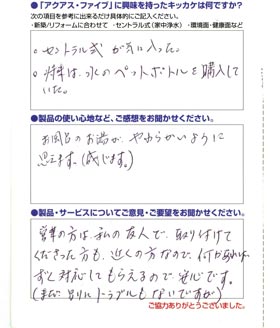 ●「アクアス・ファイブ」に興味を持ったキッカケは何ですか?
次の項目を参考に出来るだけ具体的にご記入ください。
・新築/リフォームに合わせて ・セントラル式(家中浄水) ・環境面・健康面など
・セントラル式が気に入った。
・将来は、水のペットボトルを購入して
いた。
●製品の使い心地など、ご感想をお聞かせください。
お風呂のお湯が、やわらかいように
思えます。(感じます。)
●製品・サービスについてご意見・ご要望をお聞かせください。
営業の方は、私の友人で、取り付けて
くださった方も、近くの方なので、何かあれば、
すぐ対応してもらえるので安心です。
(まだ、別にトラブルもないですが)
ご協力ありがとうございました。